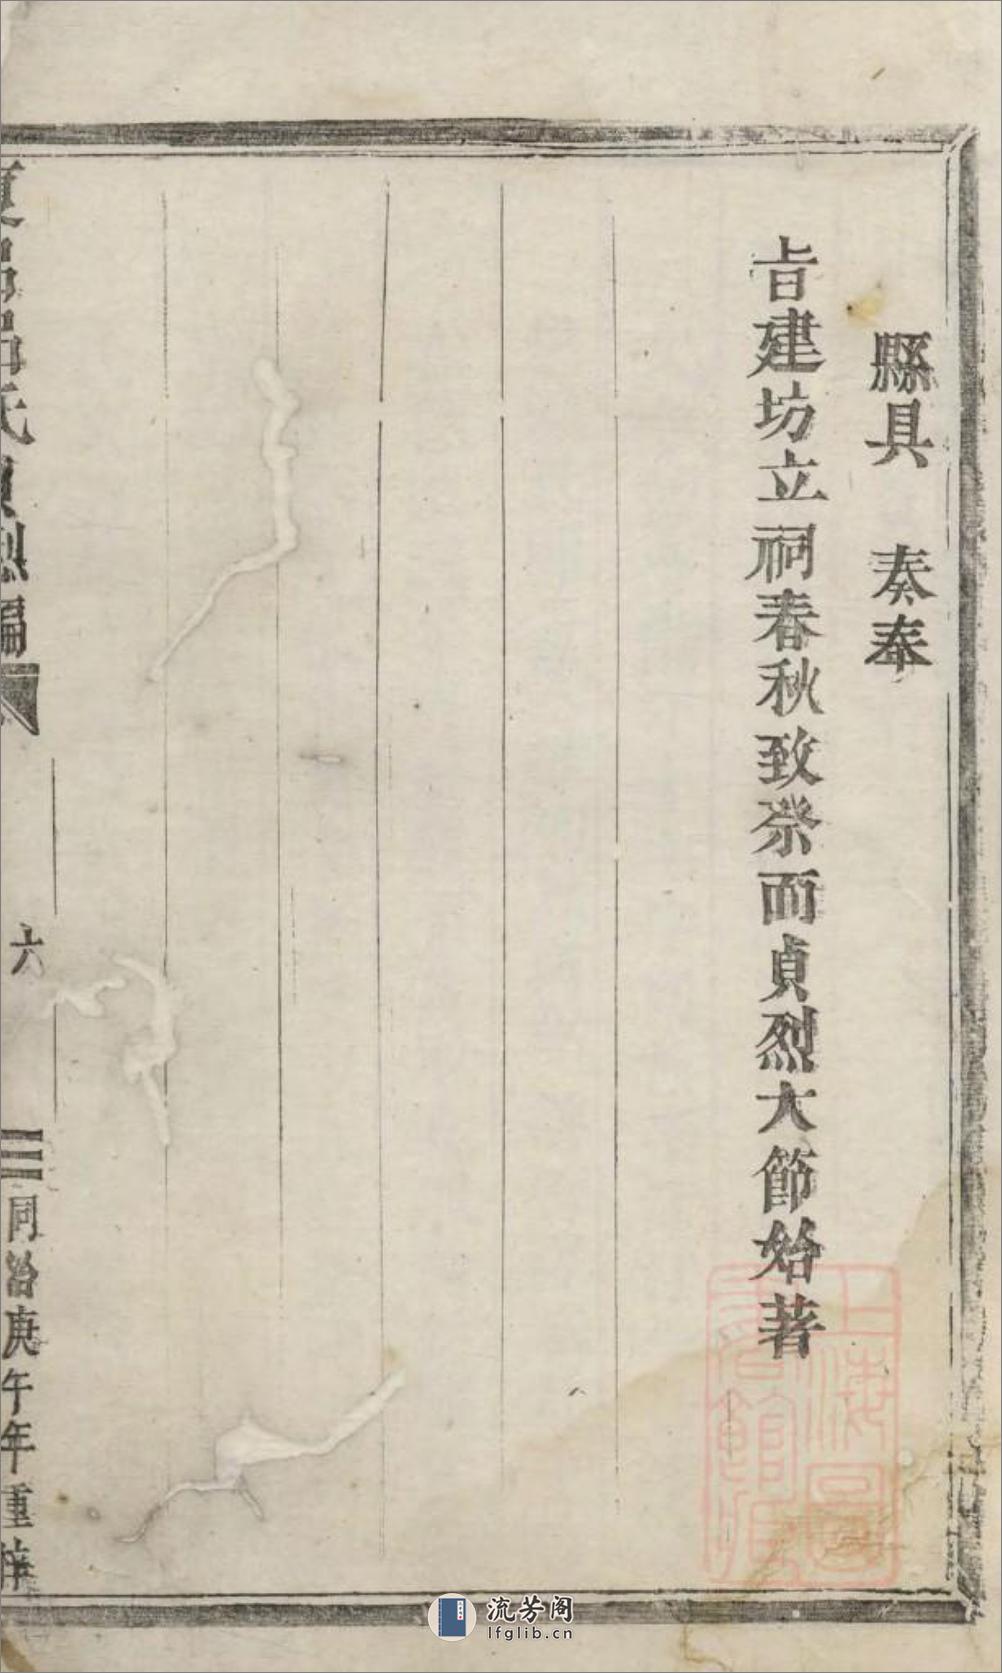 縣具　奏奉
旨建坊立祠春秋致祭而貞烈大節始著
氏貞烈編
六
同治庚午年重梓
上海圖書館藏
流芳阁
lfglib.cn